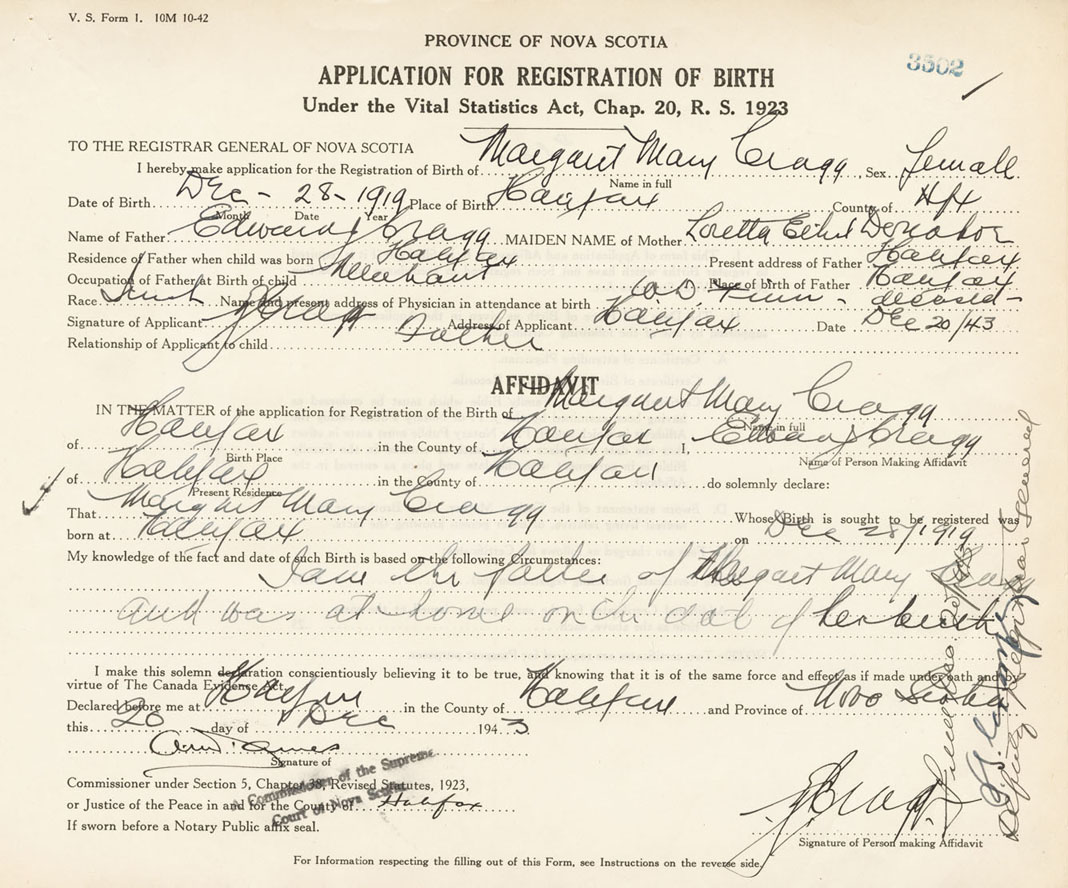 V. S. Form 1. 10M 10-42
PROVINCE OF NOVA SCOTIA
3502
APPLICATION FOR REGISTRATION OF BIRTH
Under the Vital Statistics Act, Chap. 20, R. S. 1923
TO THE REGISTRAR GENERAL OF NOVA SCOTIA
I hereby make application for the Registration of Birth of Margaret Mary Cragg Sex Female
Name in full
Date of Birth Dec - 28 - 1919 Place of Birth Halifax County of Hfx
Month Date Year
Name of Father Edward J Cragg MAIDEN NAME of Mother Loretta Donahoe
Residence of Father when child was born Halifax Present address of Father Halifax
Occupation of Father at Birth of child Merchant Place of birth of Father Halifax
Race Irish Name and present address of Physician in attendance at birth W. D. Finn - deceased -
Signature of Applicant EJ Cragg Address of Applicant Halifax Date Dec 20/43
Relationship of Applicant to child Father
AFFIDAVIT
IN THE MATTER of the application for Registration of the Birth of Margaret Mary Cragg
Name in full
of Halifax in the County of Halifax I, Edward J Cragg
Birth Place Name of Person Making Affidavit
of Halifax in the County of Halifax do solemnly declare:
Present Residence
That Margaret Mary Cragg Whose Birth is sought to be registered was
born at Halifax on Dec 28/1919
My knowledge of the fact and date of such Birth is based on the following Circumstances:
I am the father of Margaret Mary Cragg
and was at home on the date of her birth
I make this solemn declaration conscientiously believing it to be true, and knowing that it is of the same force and effect as if made under oath and by
virtue of The Canada Evidence Act.
Declared before me at Halifax in the County of Halifax and Province of Nova Scotia
this 20 day of Dec 1943
Signature of
A Commissioner of the Supreme
Court of Nova Scotia
Commissioner under Section 5, Chapter 38, Revised Statutes, 1923,
or Justice of the Peace in and for the County of Halifax
If sworn before a Notary Public affix seal.
EJ Cragg
Signature of Person making Affidavit
For Information respecting the filling out of this Form, see Instructions on the reverse side.
Deputy Registrar General